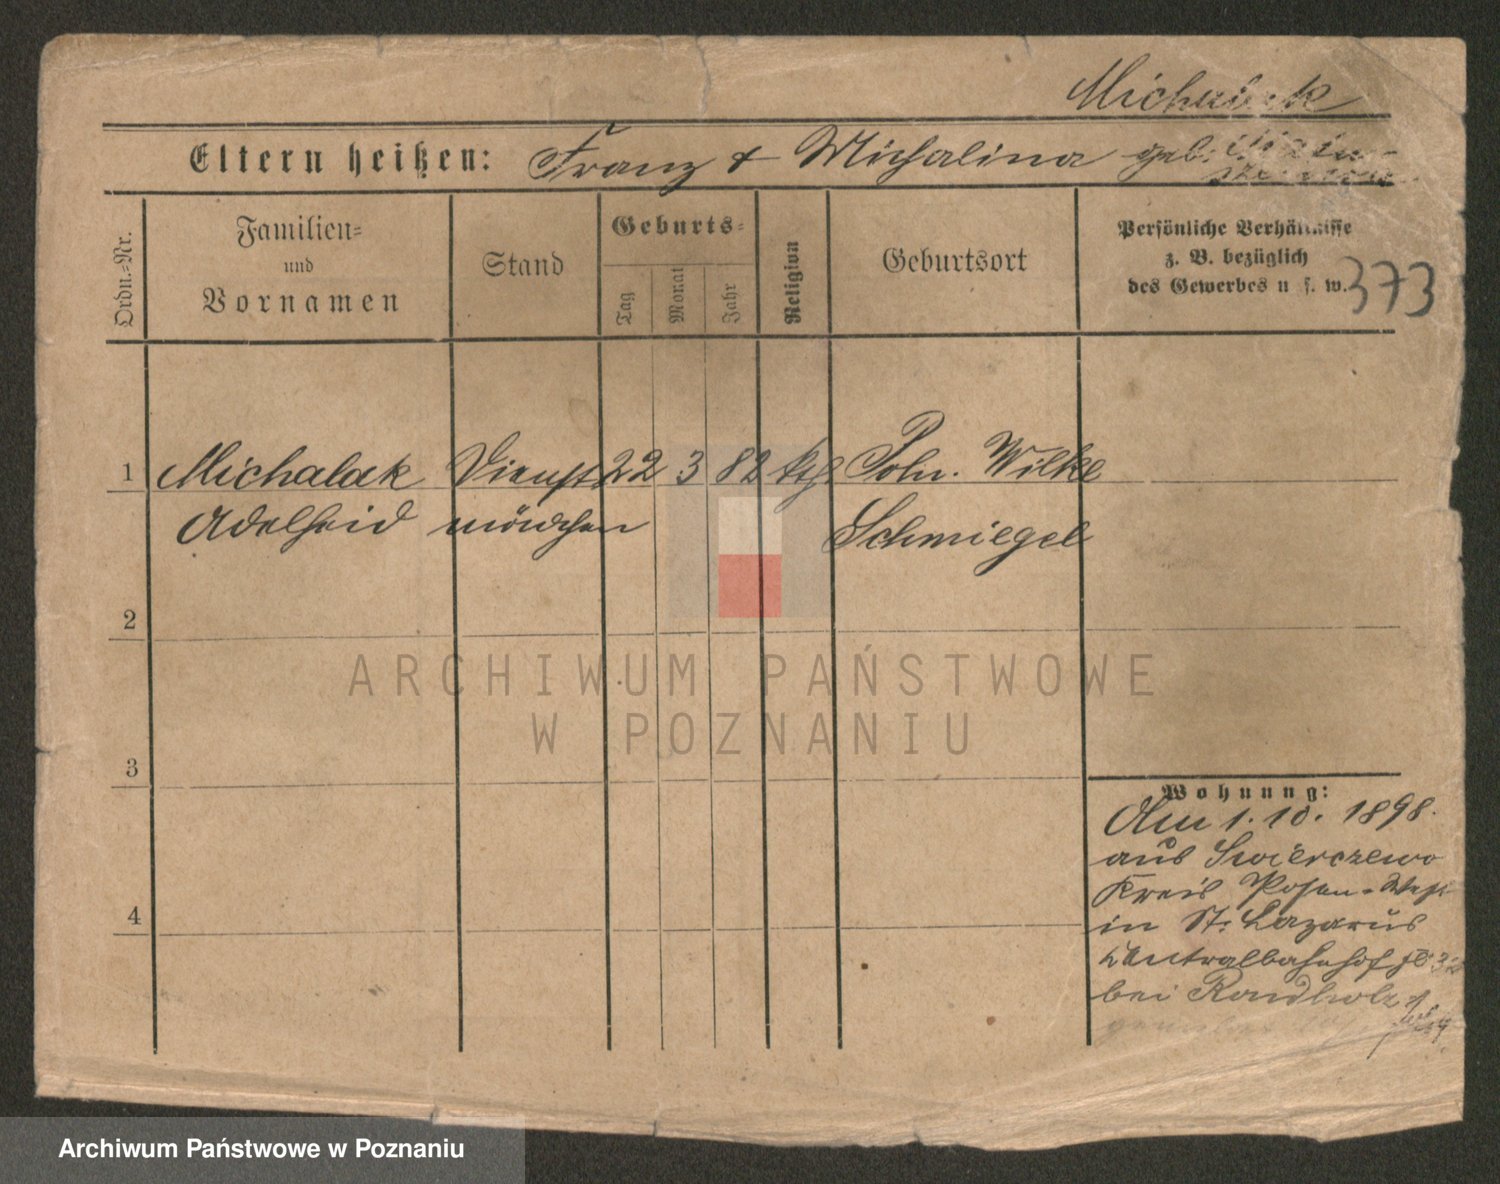 Michalak
Eltern heißen: Franz & Michalina geb.
Ordn.=Nr.
Familien=
und
Vornamen
Stand
Geburts=
Tag
Monat
Jahr
Religion
Geburtsort
Persönliche Verhältnisse
z. B. bezüglich
des Gewerbes u. s. w.
373
1 Michalak Dienst 22 3 82 kth Poln. Wilke
Adelheid mädchen Schmiegel
2
3
4
Wohnung:
Am 1. 10. 1898.
aus Swierczewo
Kreis Posen=West
in St. Lazarus
Centralbahnhof
bei
ARCHIWUM PAŃSTWOWE
W POZNANIU
Archiwum Państwowe w Poznaniu